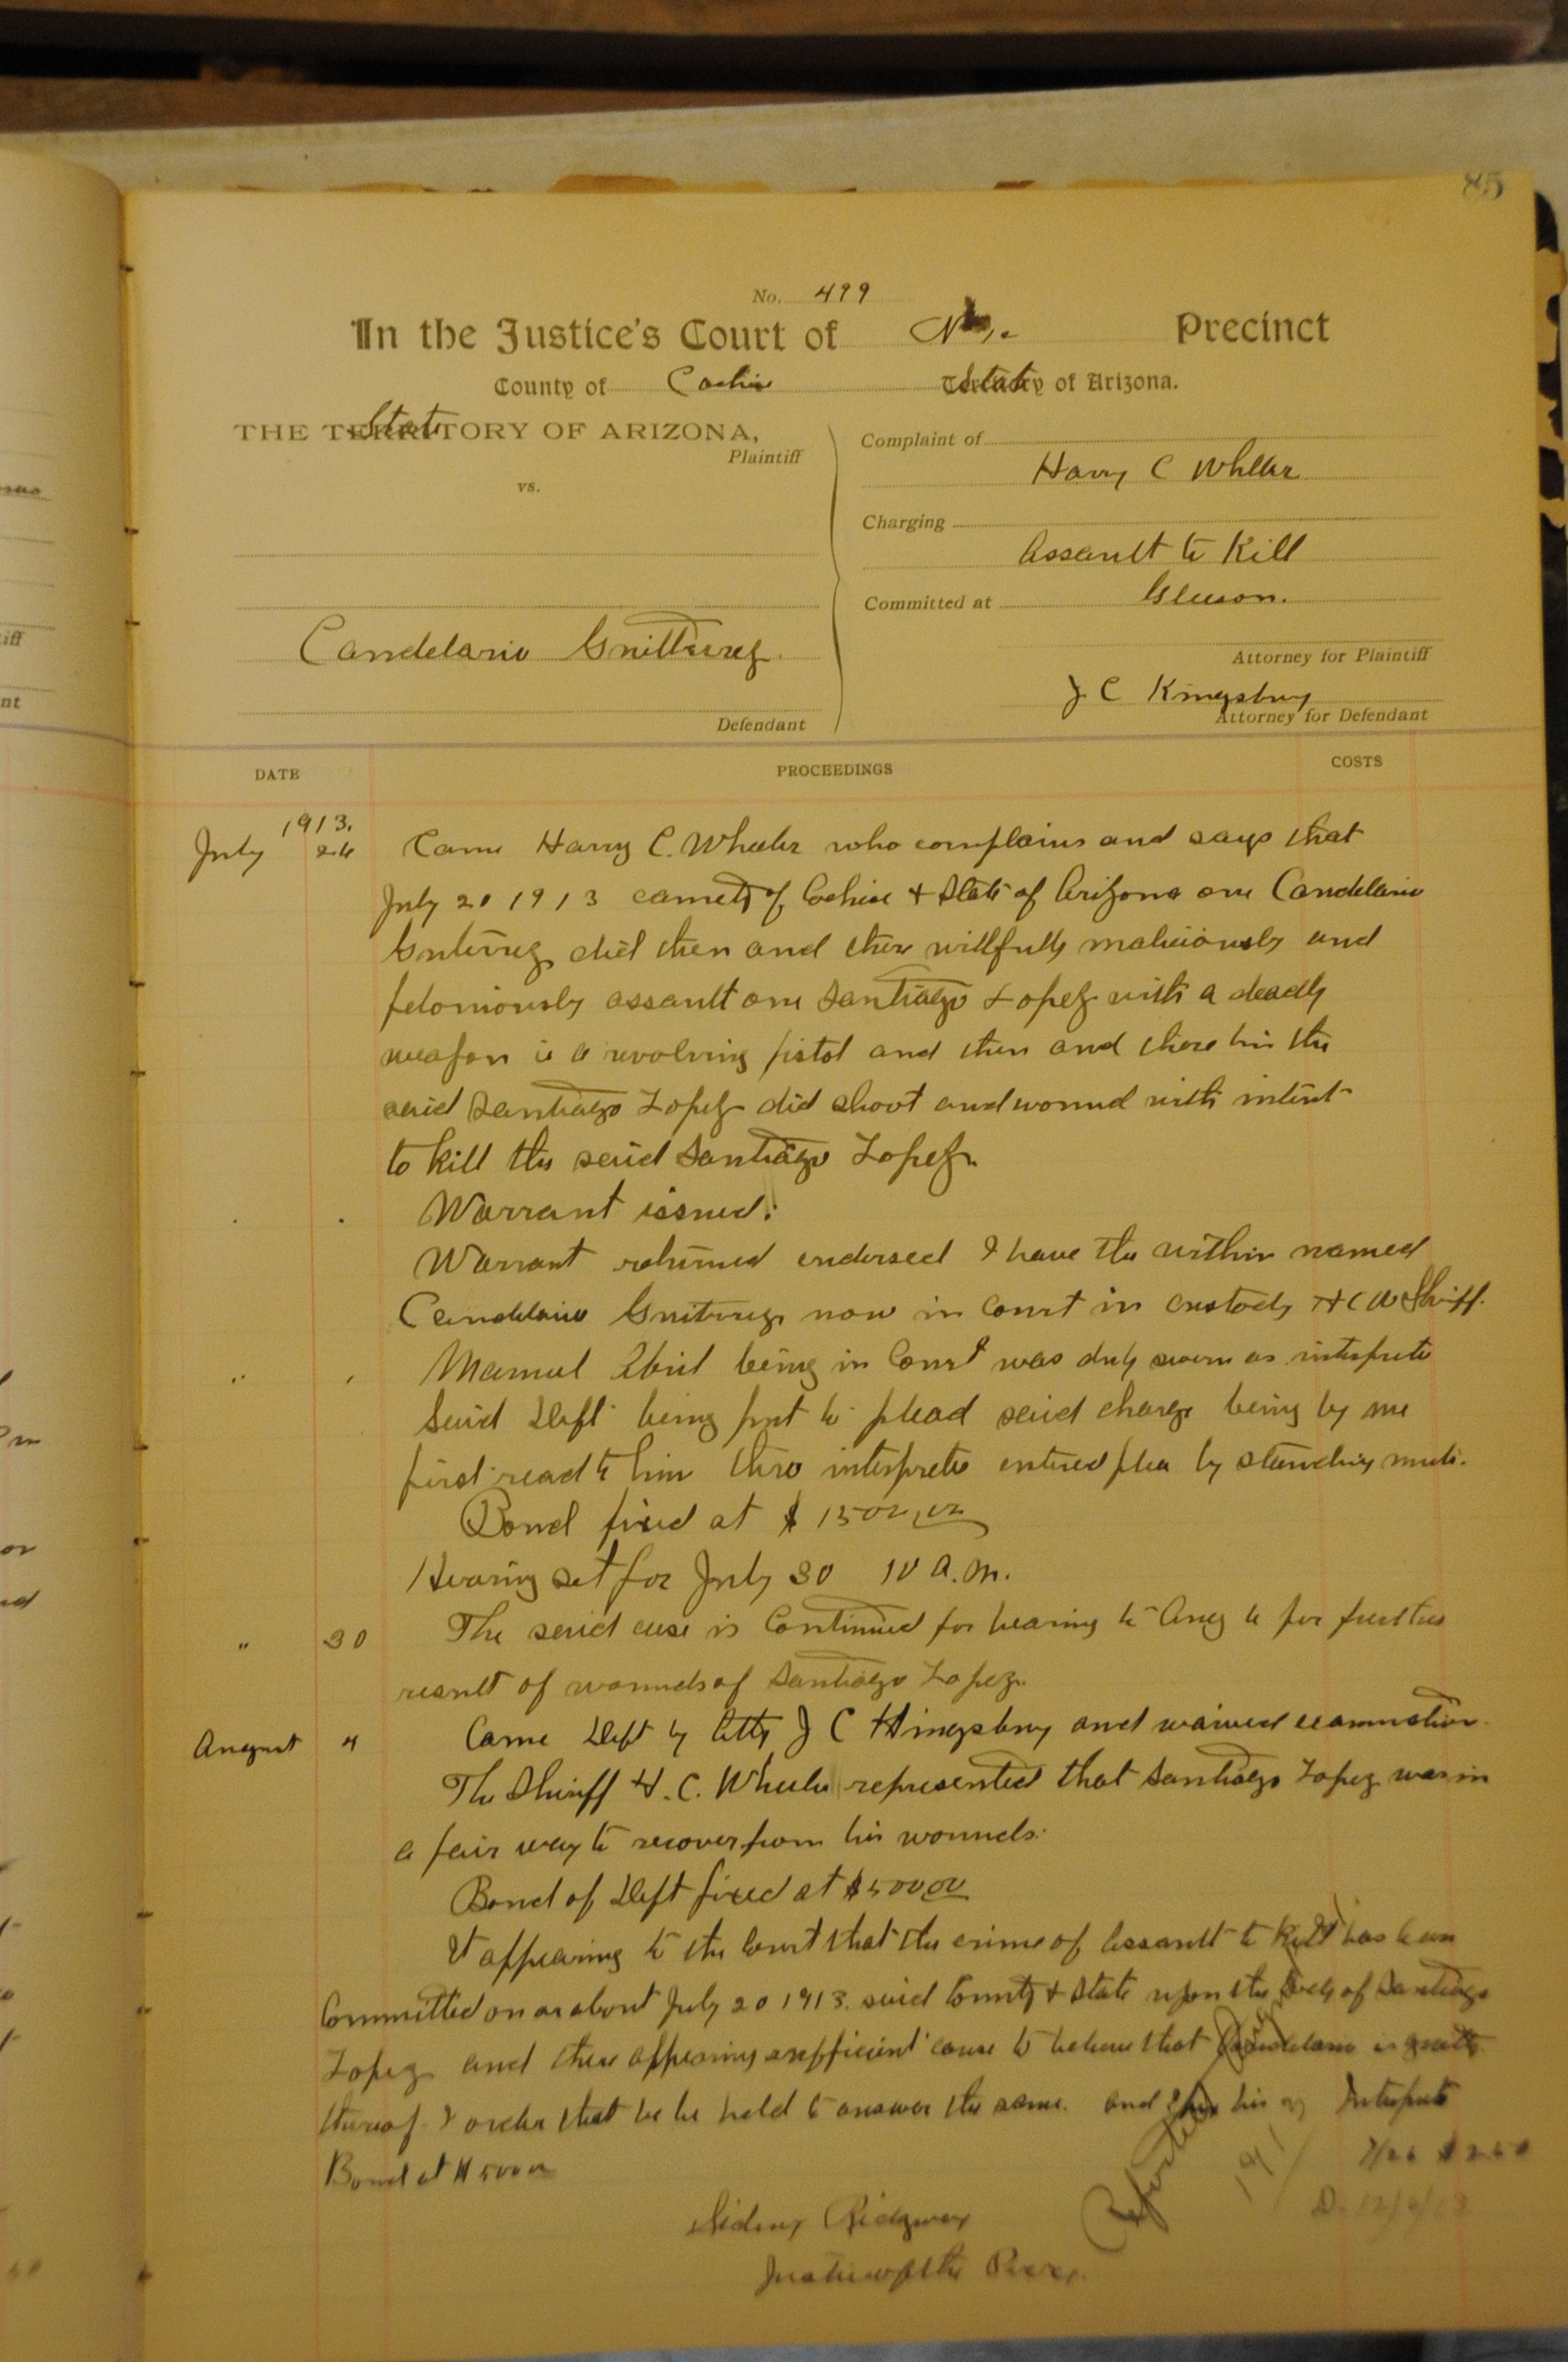 85
No. 499
In the Justice's Court of No. 1. Precinct
County of Cochise State of Arizona.
THE State TERRITORY OF ARIZONA,
Plaintiff
vs.
Candelario Guitterrez
Defendant
Complaint of
Harry C Wheeler
Charging
Assault to Kill
Committed at Gleeson.
Attorney for Plaintiff
J C Kingsbury
Attorney for Defendant
DATE PROCEEDINGS COSTS
1913.
July 26 Came Harry C. Wheeler who complains and says that
July 20 1913 county of Cochise + State of Arizona one Candelario
Guterrez did then and there willfully maliciously and
feloniously assault one Santiago Lopez with a deadly
weapon ie a revolving pistol and then and there him the
said Santiago Lopez did shoot and wound with intent
to kill the said Santiago Lopez.
Warrant issued.
Warrant returned endorsed I have the within named
Candelario Guiterrez now in Court in custody H C W Sheriff.
Manuel Abril being in Court was duly sworn as interpreter
Said Deft being put to plead said charge being by me
first read to him thro interpreter entered plea by standing mute.
Bond fixed at $ 1500.00
Hearing set for July 30 10 A.M.
" 30 The said case is Continued for hearing to Aug 4 for further
result of wounds of Santiago Lopez.
August 4 Came Deft by Atty J C Kingsbury and waived examination.
The Sheriff H. C. Wheeler represented that Santiago Lopez was in
a fair way to recover from his wounds.
Bond of Deft fixed at $50000
It appearing to the Court that the crime of Assault to Kill has been
Committed on or about July 20 1913. said County + State upon the body of Santiago
Lopez and there appearing sufficient cause to believe that Candelario is guilty
thereof I order that he be held to answer the same. and fix his Interpreter
Bond at $50000
$2.50
Sidney Ridgway
Justice of the Peace.